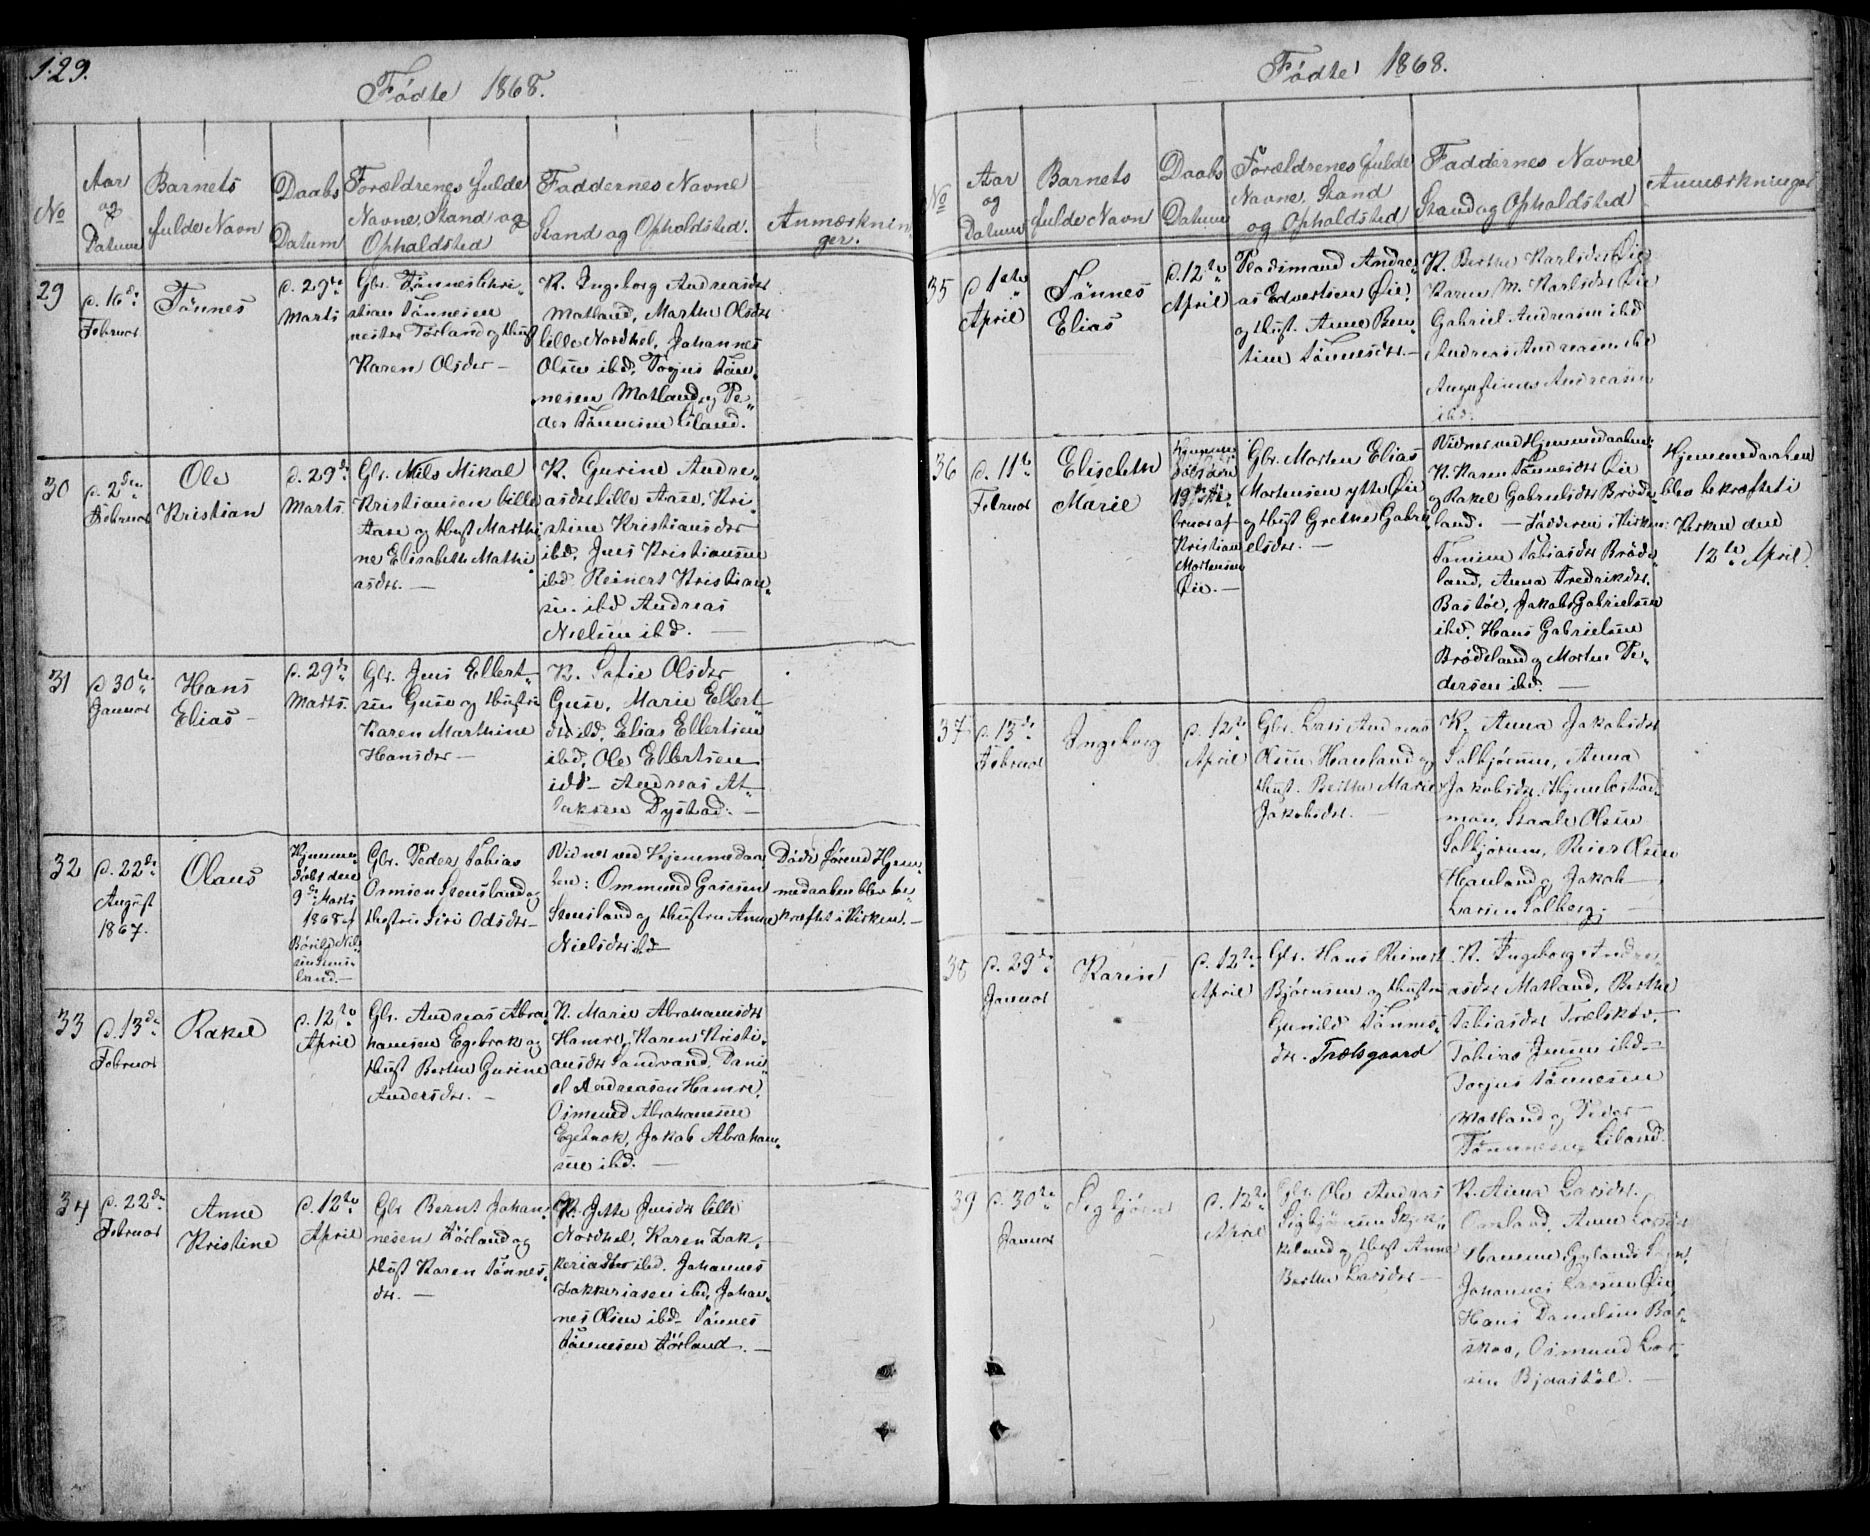 129.
Fødte 1868.
No
Aar og Datum
Barnets fulde Navn
Daabs Datum
Forældrenes fulde Navne, Stand og Opholdsted
Faddernes Navne Stand og Opholdsted.
Anmærkninger.
29
d. 16de
Februar
Tønnes
d. 29de
Marts
Gbr. Tønnes Chri„
stian Tønnesen
Tørland og Hust
Karen Olsdtr —
K. Ingeborg Andreasdtr
Matland, Marthe Olsdtr
lille Nordhel, Johannes
Olsen ibd, Torjus Tøn„
nesen Matland og Pe„
der Tønnesen Liland.
30
d. 2den
Februar
Ole
Kristian
d. 29de
Marts.
Gbr. Nils Mikal
Kristiansen lille
Aase og Hust Marthi
ne Elisabeth Mathi„
asdtr. —
K. Gurine Andre„
asdtr lille Aase, Kri„
stine Kristiansdtr
ibd, Jens Kristiansen
ibd Reinert Kristian„
sen ibd Andreas
Nielsen ibd. —
31
d 30te
Januar
Hans
Elias —
d. 29de
Marts.
Gbr. Jens Ellert„
sen Guse og Hustru
Karen Marthine
Hansdtr —
K. Sofie Olsdtr
Guse, Marie Ellert„
dtr ibd, Elias Ellertsen
ibd, Ole Ellertsen
ibd — Andreas At„
laksen Dystad. —
32
d. 22de
August
1867.
Olaus
Hjemme„
døbt den
9de Marts
1868 af
Gbr. Peder Tobias
Osmsen Stensland og
Hustru Siri Odsdtr —
Vidner ved Hjemmedaa„
ben: Ommund Gasesen
Stensland og Hustru Anna
Nielsdtr ibd —
Døde førend Hjem„
medaaben blev be„
kræftet i Kirken. —
33
d. 13de
Februar
Rakel
d. 12te
April
Gbr. Andreas Abra„
hamsen Egebrok og
Hust Berthe Gurine
Andersdtr. —
K. Marie Abrahamsdtr
Hamre, Karen Kristi„
ansdtr Sandvand, Dani„
el Andreasen Hamre,
Osmund Abrahamsen
Egebrok, Jakob Abraham„
sen ibd. —
34
d. 22de
Februar
Anne
Kristine
d. 12te
April
Gbr Bernt Johan„
nesen Tørland og
Hust Karen Tønnes„
dtr. —
K. Jette Jensdtr lille
Nordhel, Karen Zak„
keriasdtr ibd. Johannes
Zakkeriasen ibd, Johan„
nes Olsen ibd — Tønnes
Tønnesen Tørland. —
Fødte 1868.
No
Aar og Datum
Barnets fulde Navn
Daabs Datum
Forældrenes fulde Navne, Stand og Opholdsted
Faddernes Navne Stand og Opholdsted
Anmærkninger
35
d 1ste
April
Tønnes
Elias
d. 12te
April
Pladsmand Andre„
as Edvertsen Øie
og Hust. Anne Ben„
tine Tønnesdtr. —
K. Berthe Karlsdtr Øie
Karen M. Karlsdtr Øie
Gabriel Andreasen ibd
Andreas Andreasen ibd
Augustinus Andreasen
ibd.
36
d. 11te
Februar
Elisabeth
Marie
Hjemme„
døbt den
19de Fe„
bruar af
Kristian
Mortensen
Øie. —
Gbr. Morten Elias
Mortensen ytte Øie
og Hust Grethe Gabri„
elsdtr. —
Vidner ved Hjemmedaaben:
K. Karen Tønnesdtr Øie
og Rakel Gabrielsdtr Brøde„
land. — Fadderne i Kirken:
Tomine Tobiasdtr Brøde„
land, Anna Fredriksdtr.
Bastøl, Jakob Gabrielsen
ibd. Hans Gabrielsen
Brødeland og Morten Pe„
dersen ibd. —
Hjemmedaaben
blev bekræftet i
Kirken den
12te April.
37
d. 13de
Februar
Ingeborg
d. 12te
April
Gbr. Lars Andreas
Olsen Hauland og
Hust. Berthe Marie
Jakobsdtr. —
K. Anna Jakobsdtr
Solbjørum, Anna
Jakobsdtr.
Staale Olsen
Solbjørum, Reier Olsen
Hauland og Jakob
Larsen Solberg. —
38
d. 29de
Januar
Karine
d. 12te
April
Gbr. Hans Reinert
Bjørnsen og Hustru
Gunild Tønnes„
dtr. Trælsgaard
K. Ingeborg Andre„
asdtr Matland, Berthe
Tobiasdtr Trælskov,
Tobias Jensen ibd —
Torjus Tønnesen
Matland og Peder
Tønnesen Liland.
39
d. 30te
Januar
Sigbjørn
d. 12te
April
Gbr. Ole Andreas
Sigbjørnsen Skjek„
keland og Hust Anne
Berthe Larsdtr —
K. Anna Larsdtr.
Omland, Anne Larsdtr
Gylands Sogn,
Johannes Larsen Øie,
Hans Danielsen Ba„
Osmund Lar„
sen Bjaastøl. —